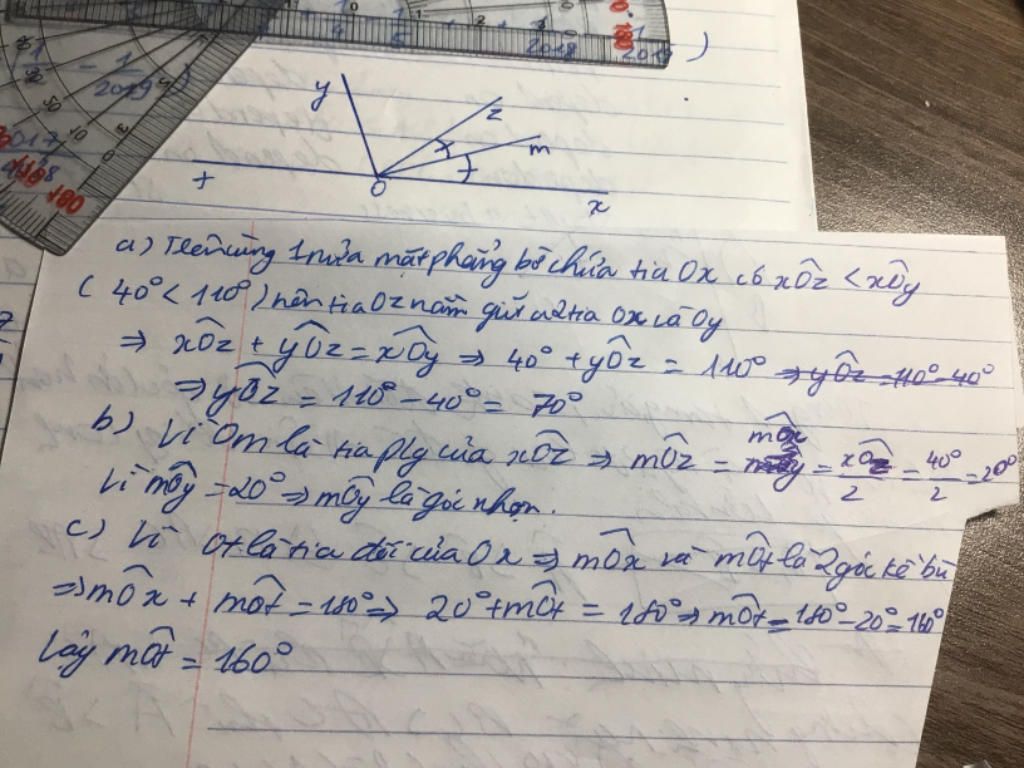 y
z
m
t
O
x
a) Trên cùng 1 nửa mặt phẳng bờ chứa tia Ox có xÔz < xÔy
( 40° < 110° ) nên tia Oz nằm giữa 2 tia Ox và Oy
⇒ xÔz + yÔz = xÔy ⇒ 40° + yÔz = 110° ⇒ yÔz = 110° - 40°
⇒ yÔz = 110° - 40° = 70°
b) Vì Om là tia p/g của xÔz ⇒ mÔz = mÔx = xÔz/2 = 40°/2 = 20°
Vì mÔy = 20° ⇒ mÔy là góc nhọn.
c) Vì Ot là tia đối của Ox ⇒ mÔx và mÔt là 2 góc kề bù
⇒ mÔx + mÔt = 180° ⇒ 20° + mÔt = 180° ⇒ mÔt = 180° - 20° = 160°
Vậy mÔt = 160°